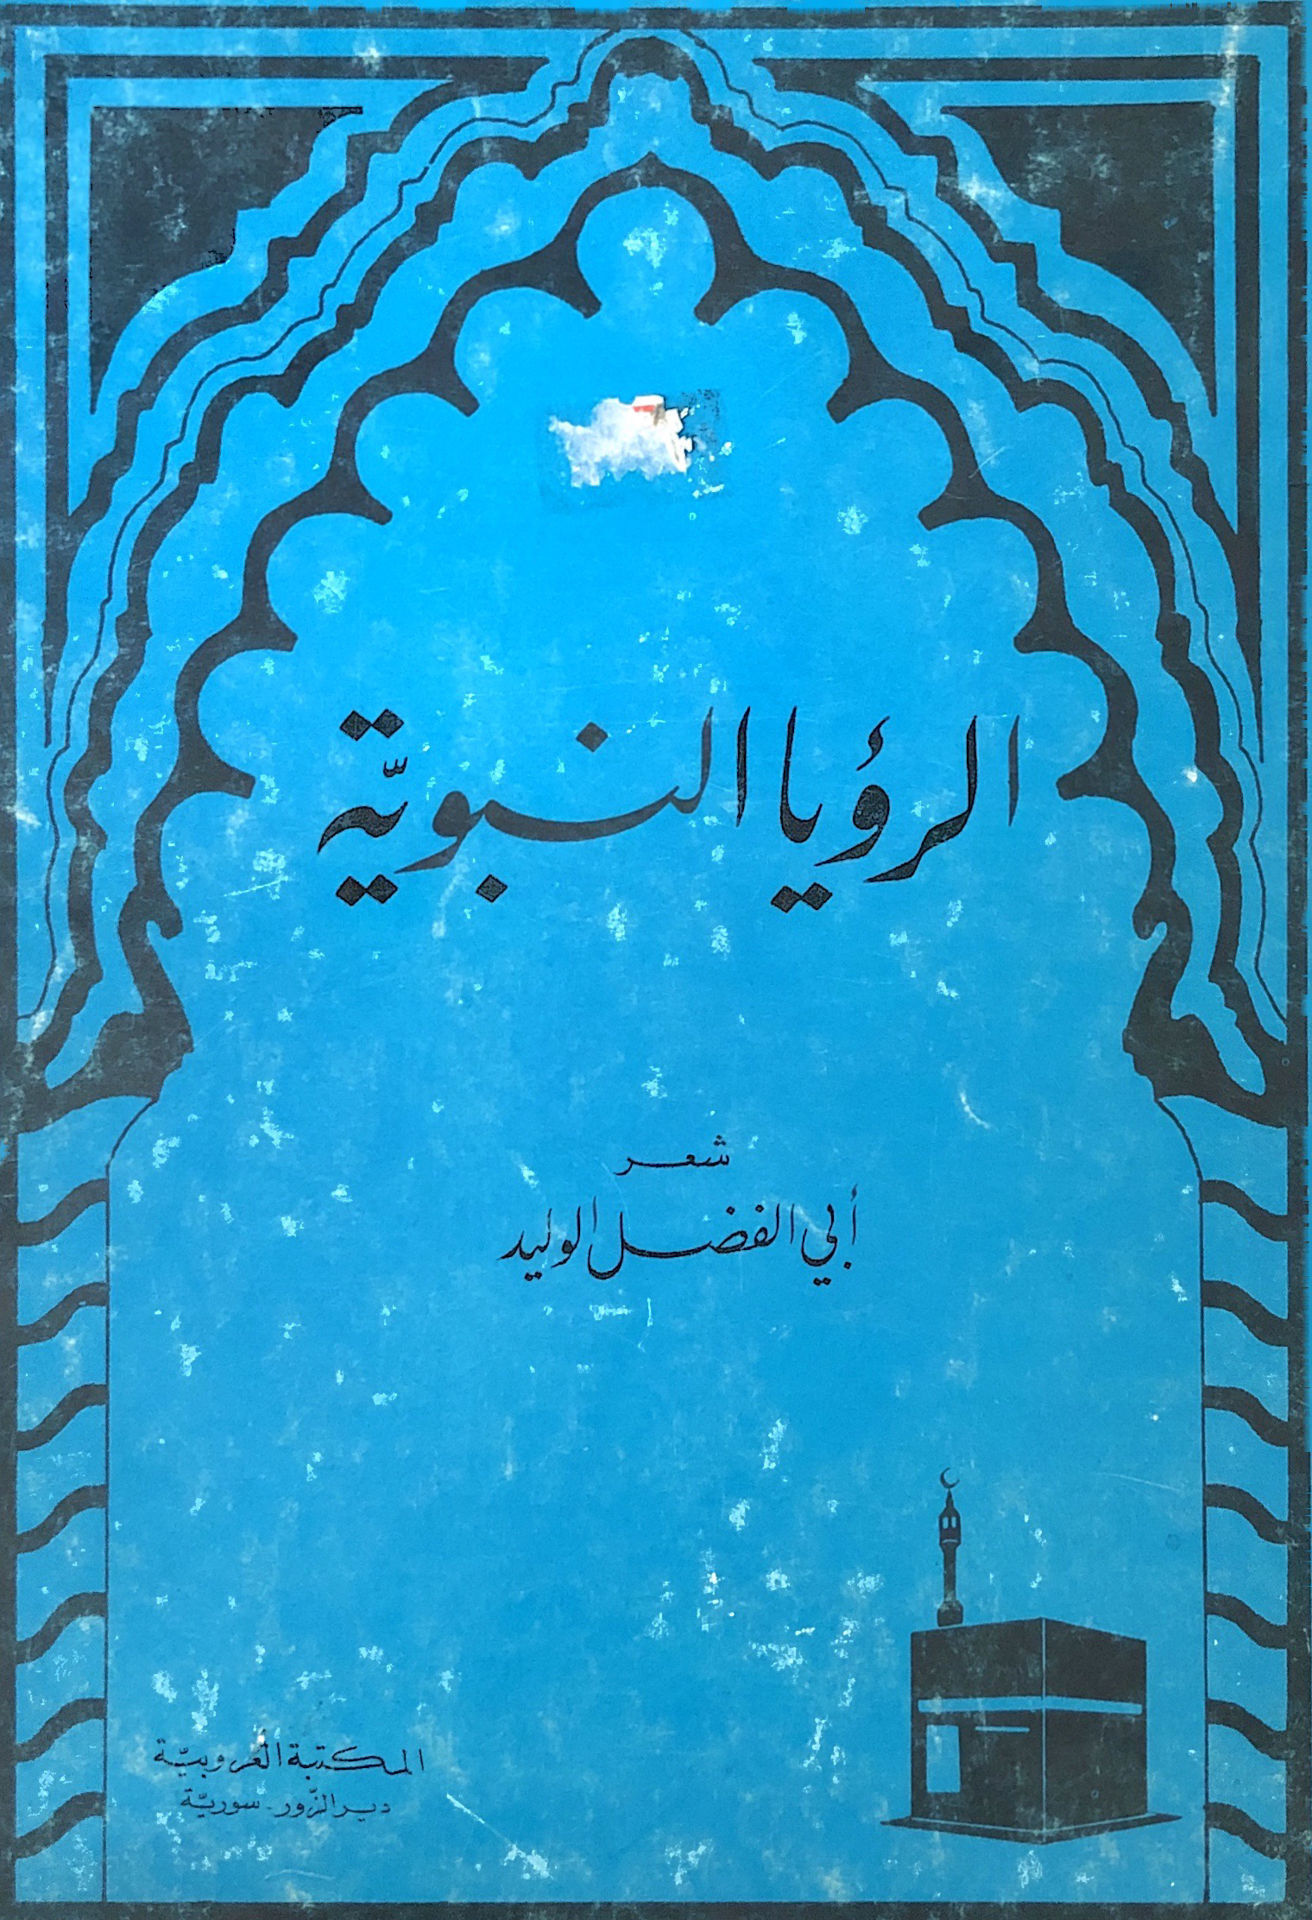 الرؤيا النبويّة
شعر
أبي الفضل الوليد
المكتبة العروبيّة
ديرالزّور - سوريّة